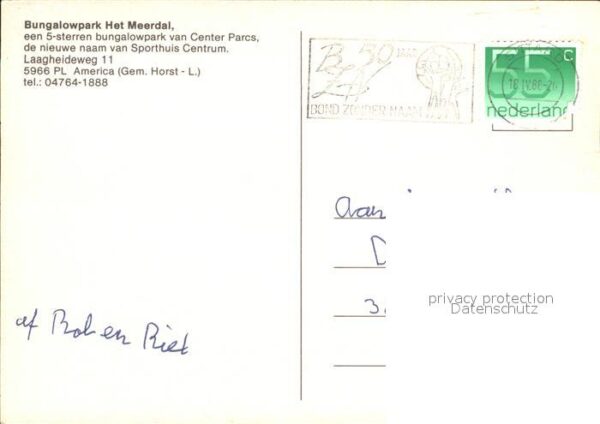 Bungalowpark Het Meerdal,
een 5-sterren bungalowpark van Center Parcs,
de nieuwe naam van Sporthuis Centrum.
Laagheideweg 11
5966 PL America (Gem. Horst - L.)
tel.: 04764-1888
50 jaar
BZN
BOND ZONDER NAAM
55 c
nederland
18.IV.88
Aan
D
3
privacy protection
Datenschutz
af Rob en Riet